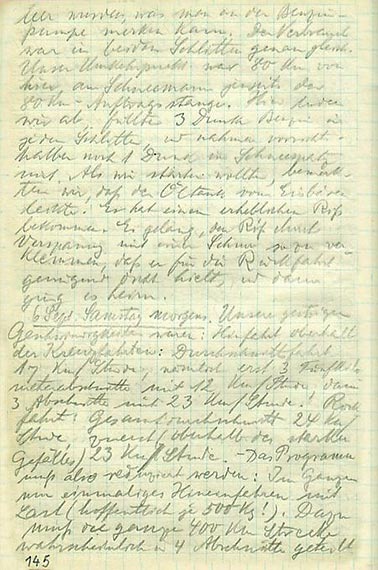 leer wurden, was man an der Benzin-
pumpe merken kann. Der Verbrauch
war in beiden Schlitten genau gleich.
Unser Umkehrpunkt war 80 km von
hier am Schneemann jenseits der
80 km-. Hier luden
wir ab, füllten 3 Dunk Benzin in
jeden Schlitten, und nahmen vorsichts-
halber noch 1 Dunk im
mit. Als wir starten wollten, bemerk-
ten wir, daß der Öltank vom Eisbären
leckte. Er hat einen erheblichen Riß
bekommen. Es gelang, den Riß durch
und einen so zu ver-
klemmen, daß er für die Rückfahrt
genügend dicht hielt, und dann
ging es heim.
6 Sept. Samstag morgens. Unsere gestrigen
Geschwindigkeiten waren: Hinfahrt oberhalb
der : Durchschnittsfahrt
17 km/Stunde, nämlich erst 3
mit 12 km/Stunde dann
3 Abschnitte mit 23 km/Stunde! Rück-
fahrt: Gesamtdurchschnitt 24 km/
Stunde, zuerst (oberhalb des starken
Gefälles) 23 km/Stunde. - Das Programm
muß also reduziert werden: Im Ganzen
nur einmaliges Hineinfahren mit
Last (hoffentlich je 500 kg!). Dazu
muß die ganze 400 km Strecke
wahrscheinlich in 4 Abschnitte geteilt
145